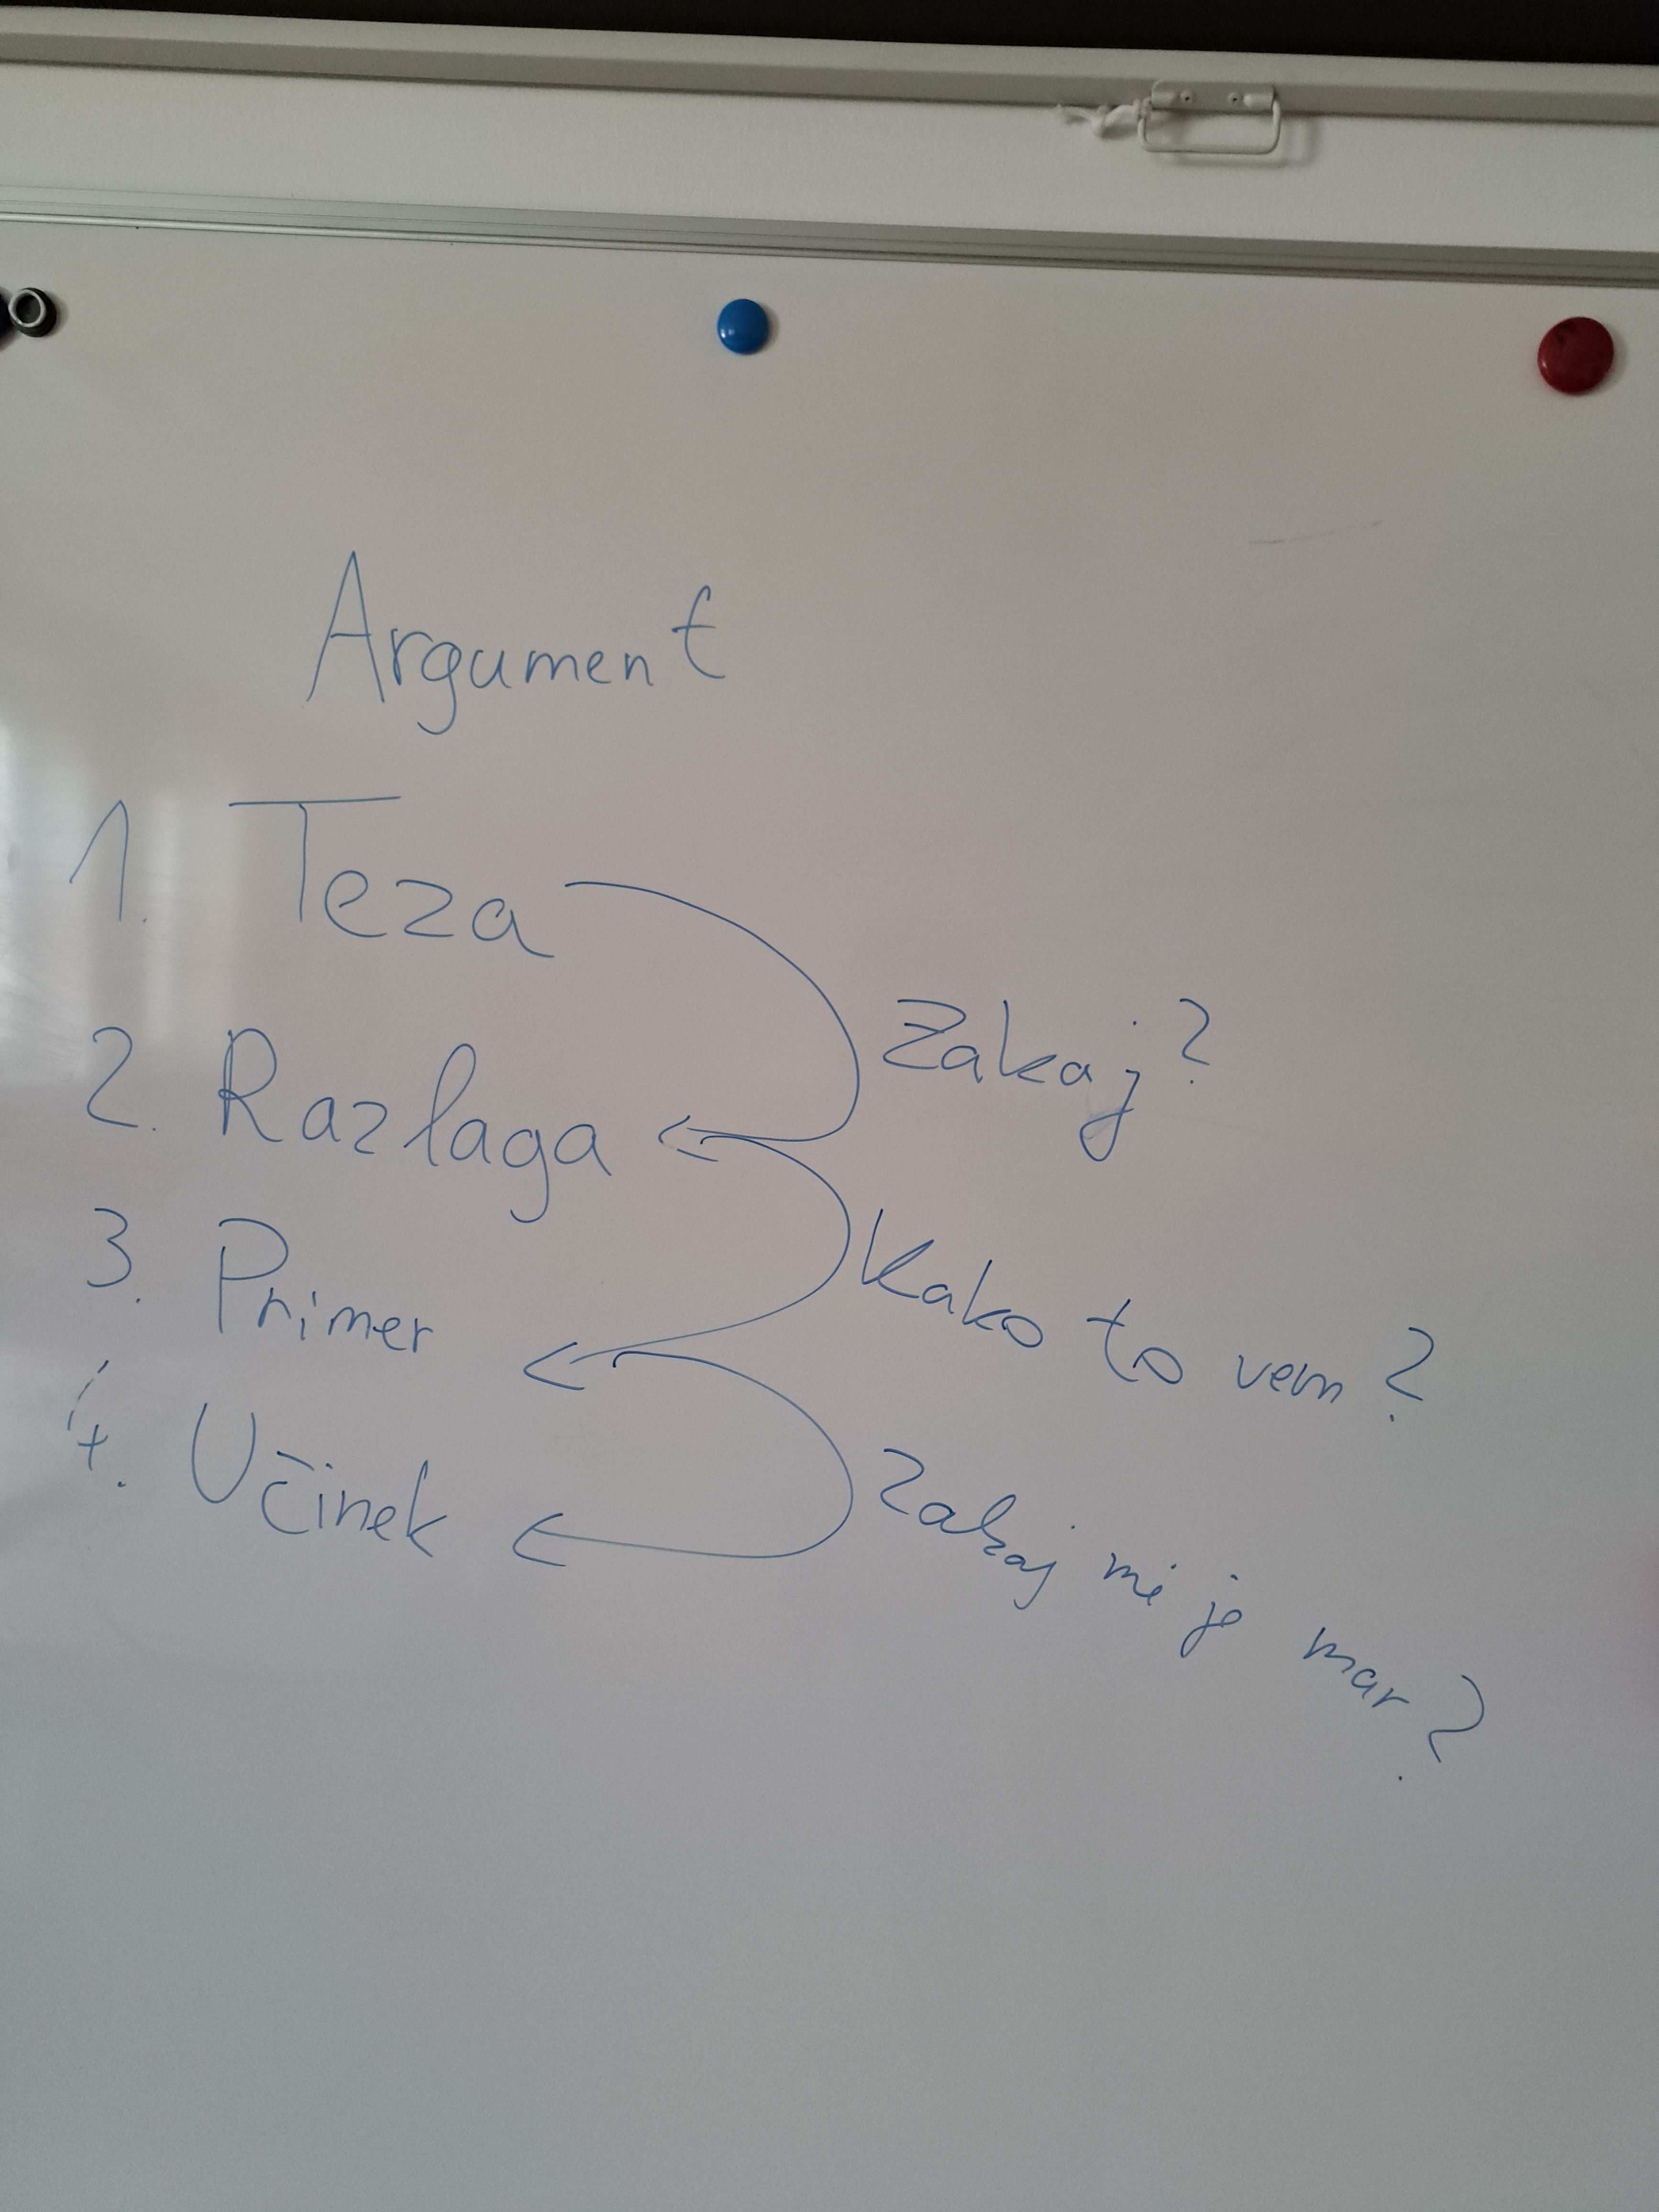 Argument
1. Teza
Zakaj?
2. Razlaga
Kako to vem?
3. Primer
Zakaj mi je mar?
4. Učinek